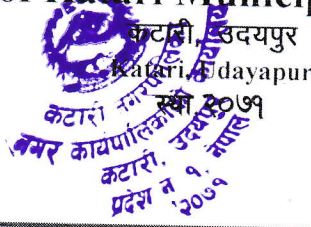 of Katari Municip
कटारी, उदयपुर
Katari, Udayapur
स्था. २०७१
कटारी नगरपालिका
नगर कार्यपालिकाको कार्यालय
कटारी, उदयपुर
प्रदेश नं १, नेपाल
२०७१